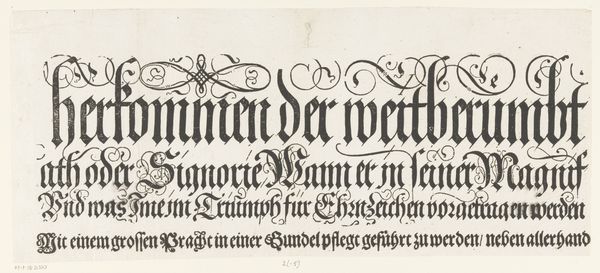 herkommen der weitberumbt
ath oder Signorie Wann er in seiner Magnif
Vnd was Ime im Triumph für Ehrnzeichen vorgetragen werden
Mit einem grossen Pracht in einer Gundel pflegt geführt zu werden / neben allerhand
2(-5)